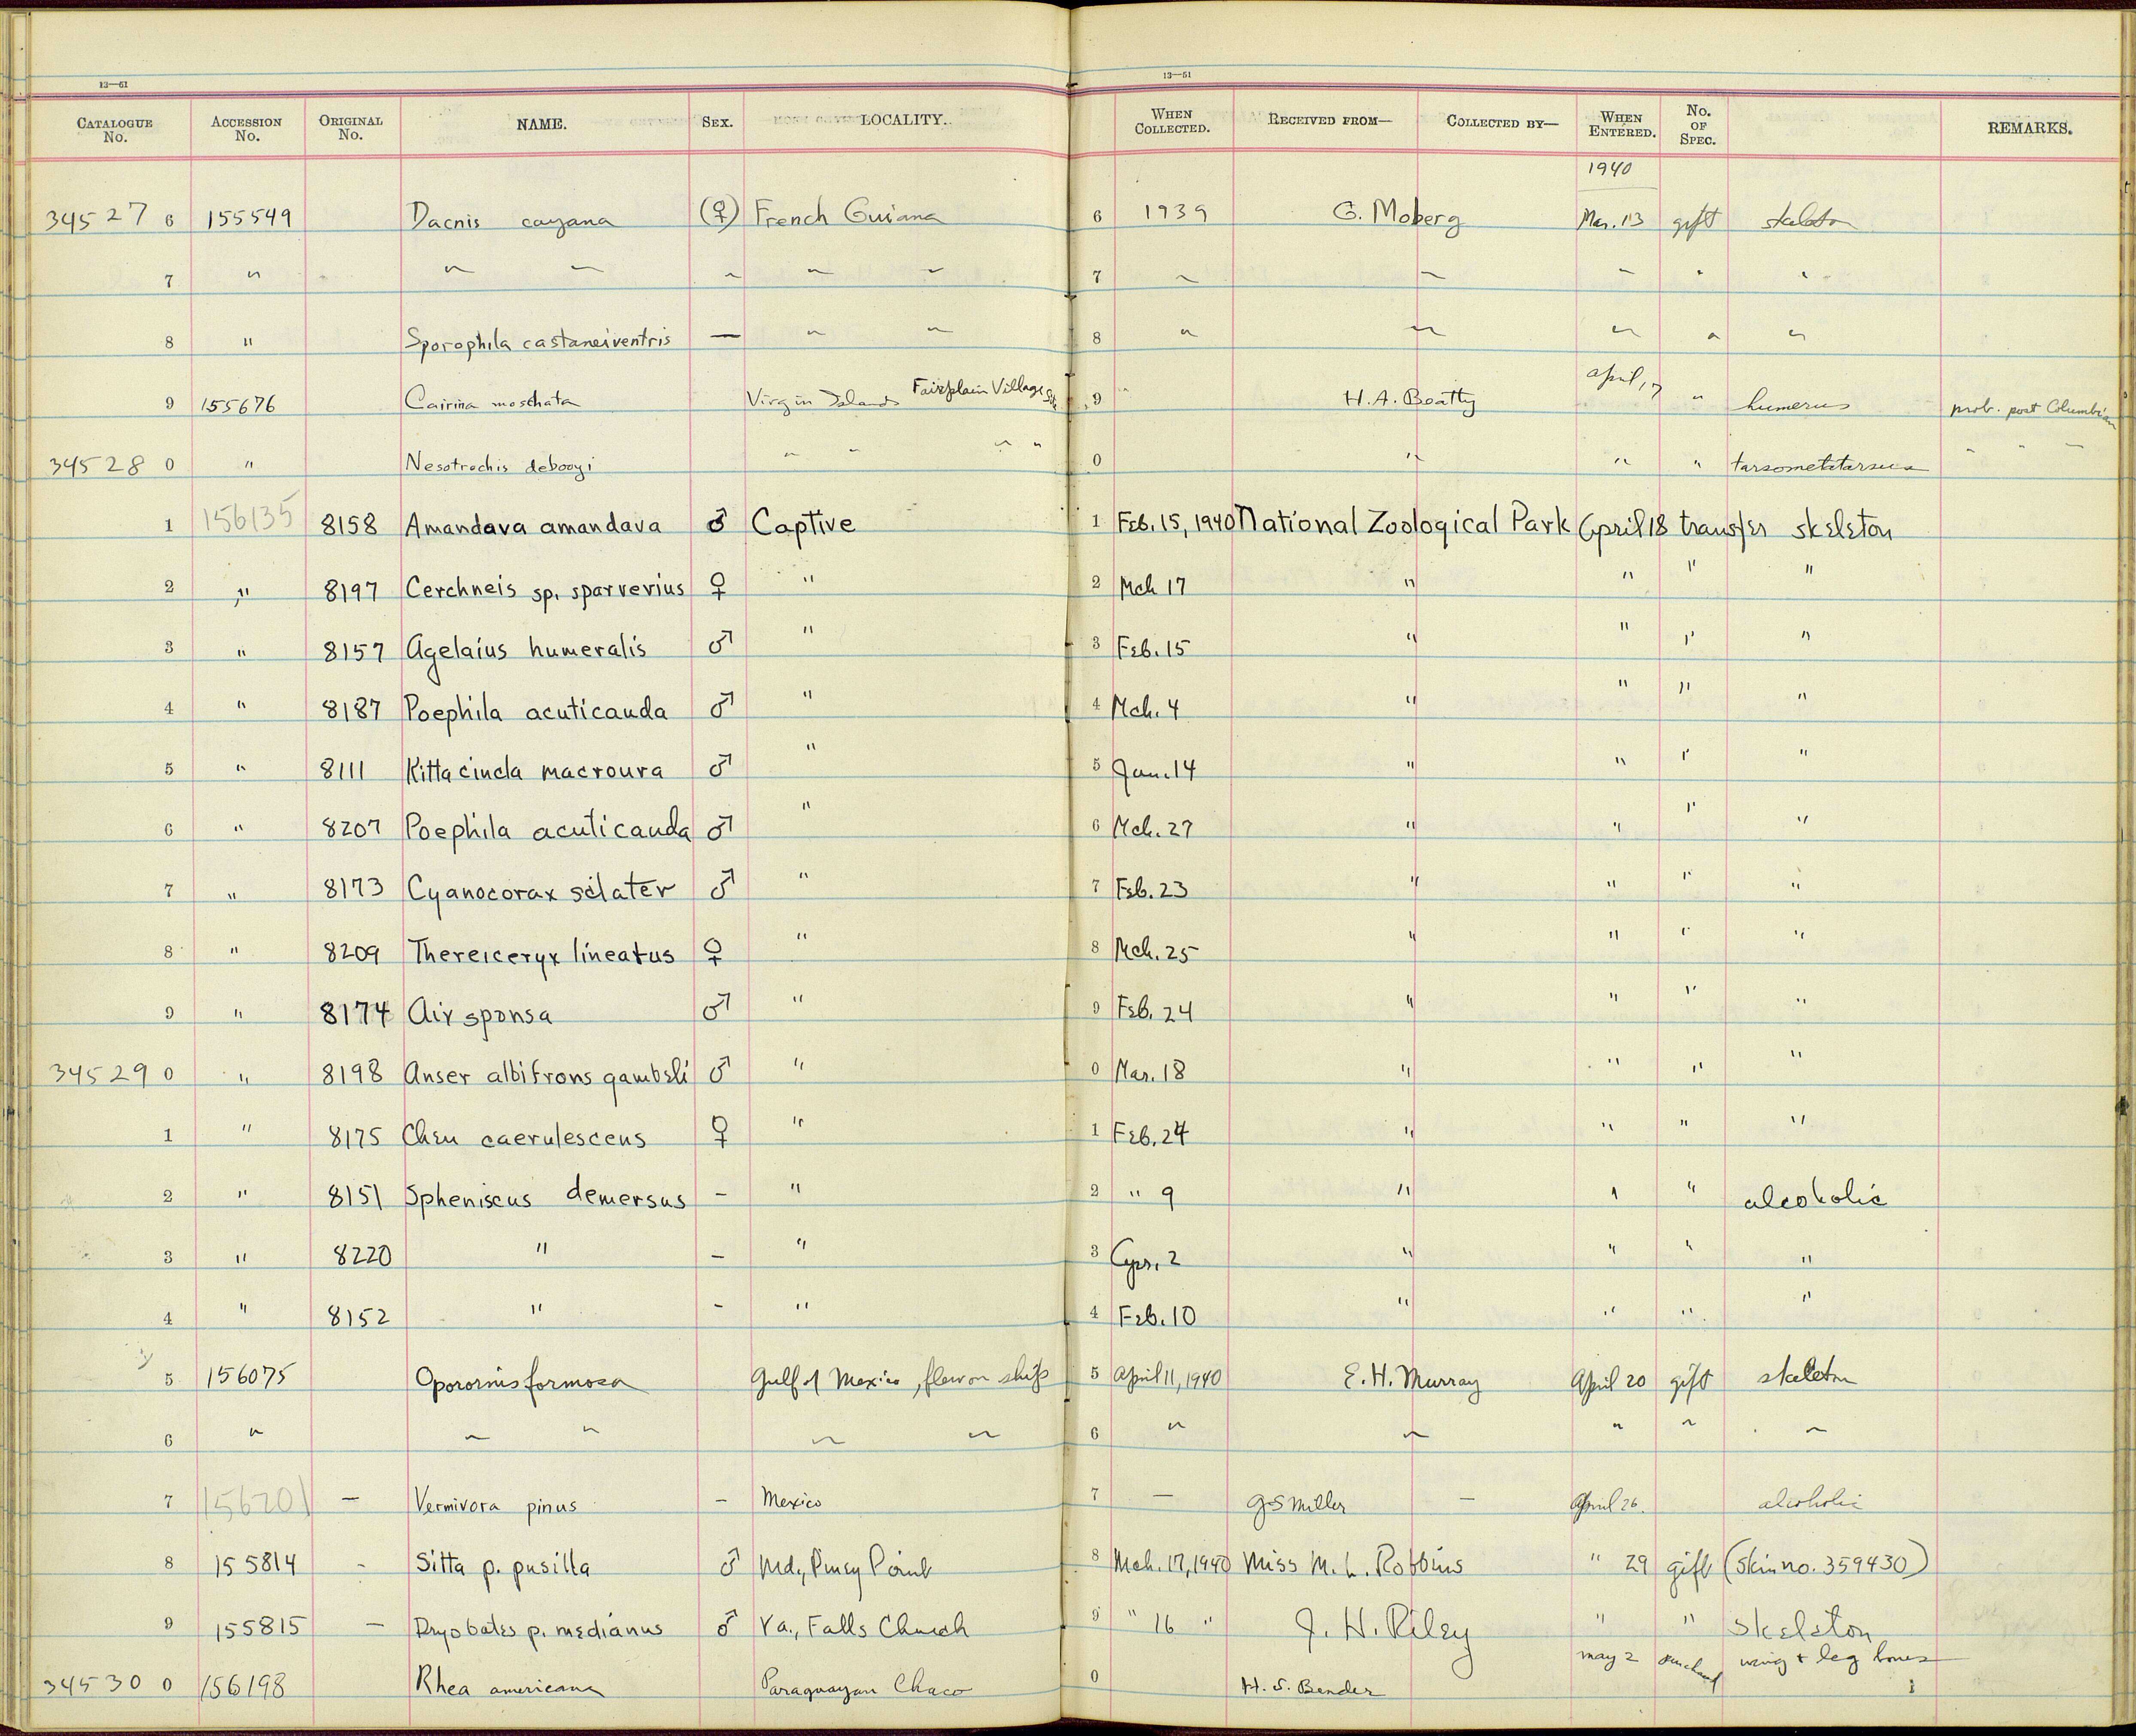 13—51 13—51
CATALOGUE No. ACCESSION No. ORIGINAL No. NAME. SEX. LOCALITY. WHEN COLLECTED. RECEIVED FROM— COLLECTED BY— WHEN ENTERED. No. OF SPEC. REMARKS.
1940
34527 6 155549 Dacnis cayana (♀) French Guiana 6 1939 G. Moberg Mar. 13 gift skeleton
7 " " " " " " 7 " " " " "
8 " Sporophila castaneiventris — " " 8 " " " " "
9 155676 Cairina moschata Virgin Islands Fairplain Village Site 9 " H.A. Beatty April 17 " humerus prob. post Columbian
34528 0 " Nesotrochis debooyi " " " " 0 " " " tarsometatarsus " " "
1 156135 8158 Amandava amandava ♂ Captive 1 Feb. 15, 1940 National Zoological Park April 18 transfer skeleton
2 " 8197 Cerchneis sp. sparverius ♀ " 2 Mch 17 " " " "
3 " 8157 Agelaius humeralis ♂ " 3 Feb. 15 " " " "
4 " 8187 Poephila acuticauda ♂ " 4 Mch. 4 " " " "
5 " 8111 Kittacincla macroura ♂ " 5 Jan. 14 " " " "
6 " 8207 Poephila acuticauda ♂ " 6 Mch. 27 " " " "
7 " 8173 Cyanocorax sclater ♂ " 7 Feb. 23 " " " "
8 " 8209 Thereiceryx lineatus ♀ " 8 Mch. 25 " " " "
9 " 8174 Aix sponsa ♂ " 9 Feb. 24 " " " "
34529 0 " 8198 Anser albifrons gambeli ♂ " 0 Mar. 18 " " " "
1 " 8175 Chen caerulescens ♀ " 1 Feb. 24 " " " "
2 " 8151 Spheniscus demersus – " 2 " 9 " " " alcoholic
3 " 8220 " – " 3 Apr. 2 " " " "
4 " 8152 " – " 4 Feb. 10 " " " "
5 156075 Oporornis formosa Gulf of Mexico, flew on ship 5 April 11, 1940 E. H. Murray April 20 gift skeleton
6 " " " " " 6 " " " " "
7 156201 — Vermivora pinus – Mexico 7 — G S Miller — April 26 alcoholic
8 155814 - Sitta p. pusilla ♂ Md., Piney Point 8 Mch. 17, 1940 Miss M. L. Robbins " 29 gift (Skin no. 359430)
9 155815 — Dryobates p. medianus ♂ Va., Falls Church 9 " 16 " J. H. Riley " " Skeleton
34530 0 156198 Rhea americana Paraguayan Chaco 0 H. S. Bender May 2 purchased wing & leg bones